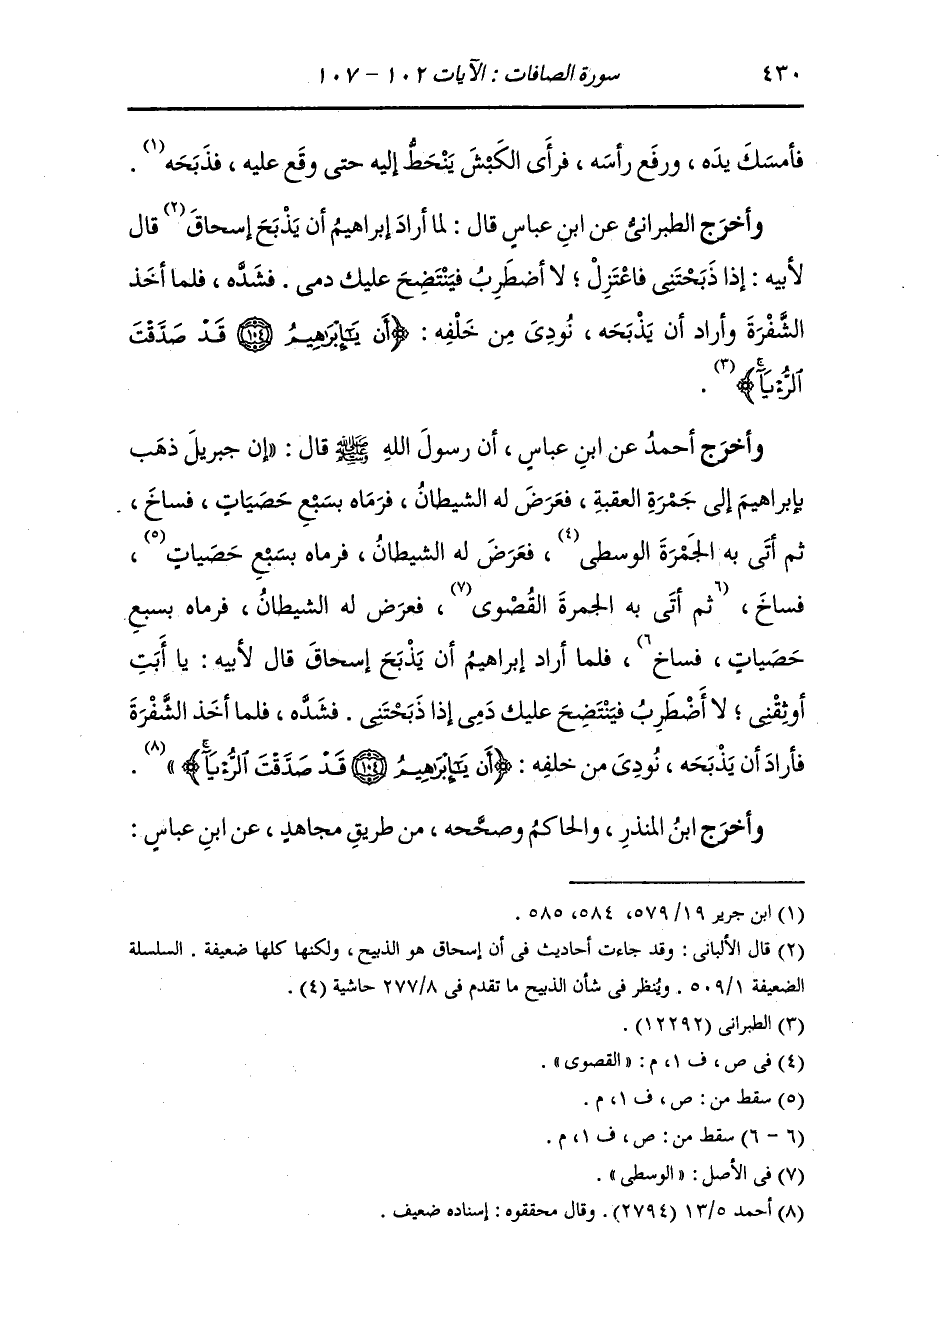 ٤٣٠ سورة الصافات : الآيات ١٠٢ - ١٠٧
فأمسَكَ يدَه ، ورفَع رأسَه ، فرأَى الكَبْشَ يَنْحَطُّ إليه حتى وقَع عليه ، فذَبَحَه(١) .
وأخرَج الطبرانىُّ عن ابنِ عباسٍ قال : لما أرادَ إبراهيمُ أن يَذْبَحَ إسحاقَ(٢) قال
لأبيه : إذا ذَبَحْتَنِى فاعْتَزِلْ ؛ لا أضطَرِبُ فيَنْتَضِحَ عليك دمى . فشَدَّه ، فلما أخَذ
الشَّفْرَةَ وأراد أن يَذْبَحَه ، نُودِىَ مِن خَلْفِه : ﴿أَن يَٰٓإِبْرَٰهِيمُ ۝١٠٤ قَدْ صَدَّقْتَ
ٱلرُّءْيَآۚ﴾(٣) .
وأخرَج أحمدُ عن ابنِ عباسٍ ، أن رسولَ اللهِ ﷺ قال : «إن جبريلَ ذهَب
بإبراهيمَ إلى جَمْرَةِ العقبةِ ، فعَرَضَ له الشيطانُ ، فرَمَاه بسَبْعِ حَصَيَاتٍ ، فساخَ ،
ثم أتَى به الجَمْرَةَ الوسطى(٤) ، فعَرَضَ له الشيطانُ ، فرماه بسَبْعِ حَصَياتٍ(٥) ،
فساخَ ، (٦ثم أتَى به الجمرةَ القُصْوى(٧) ، فعرَض له الشيطانُ ، فرماه بسبعِ
حَصَياتٍ ، فساخ٦) ، فلما أراد إبراهيمُ أن يَذْبَحَ إسحاقَ قال لأبيه : يا أَبَتِ
أوثِقْنِى ؛ لا أَضْطَرِبُ فيَنْتَضِحَ عليك دَمِى إذا ذَبَحْتَنِى . فشَدَّه ، فلما أخَذ الشَّفْرَةَ
فأرادَ أن يَذْبَحَه ، نُودِىَ من خلفِه : ﴿أَن يَٰٓإِبْرَٰهِيمُ ۝١٠٤ قَدْ صَدَّقْتَ ٱلرُّءْيَآۚ﴾»(٨) .
وأخرَج ابنُ المنذرِ ، والحاكمُ وصحَّحه ، من طريقِ مجاهدٍ ، عن ابنِ عباسٍ :
(١) ابن جرير ١٩/ ٥٧٩، ٥٨٤، ٥٨٥ .
(٢) قال الألبانى : وقد جاءت أحاديث فى أن إسحاق هو الذبيح ، ولكنها كلها ضعيفة . السلسلة
الضعيفة ٥٠٩/١ . ويُنظر فى شأن الذبيح ما تقدم فى ٢٧٧/٨ حاشية (٤) .
(٣) الطبرانى (١٢٢٩٢) .
(٤) فى ص ، ف ١، م : « القصوى » .
(٥) سقط من : ص ، ف ١، م .
(٦ - ٦) سقط من : ص ، ف ١، م .
(٧) فى الأصل : « الوسطى » .
(٨) أحمد ١٣/٥ (٢٧٩٤) . وقال محققوه : إسناده ضعيف .